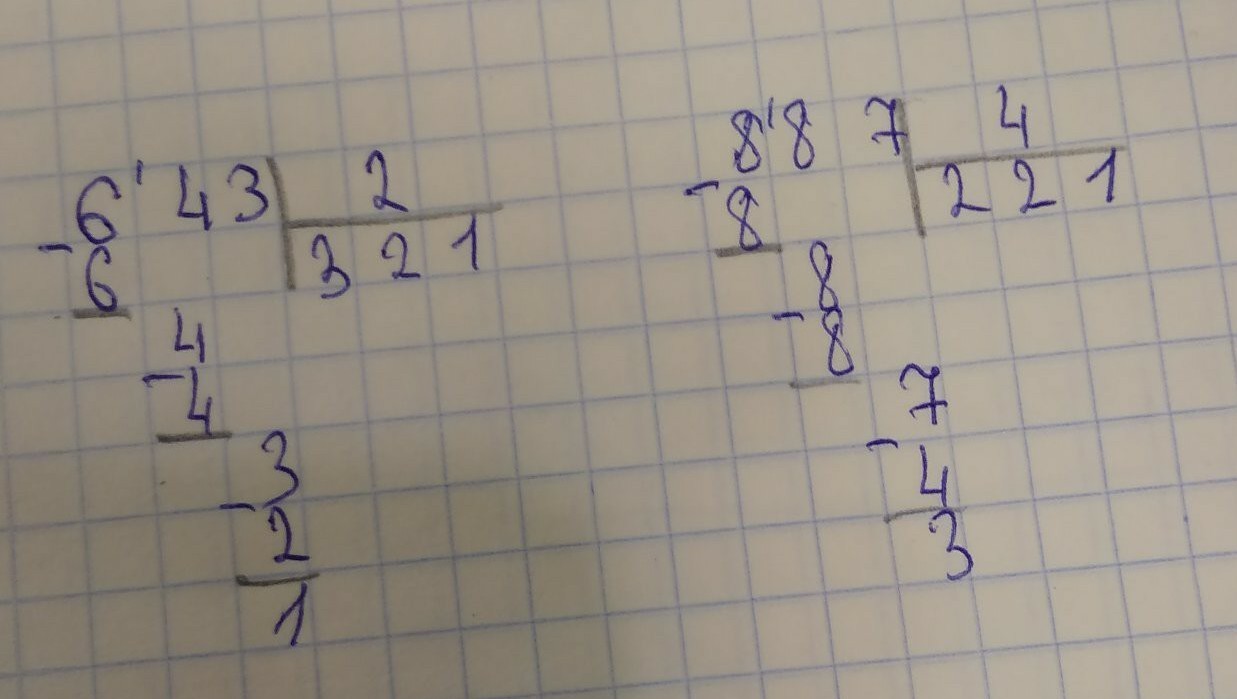 6'43 2
-6 321
4
-4
3
-2
1
8'87 4
-8 221
8
-8
7
-4
3